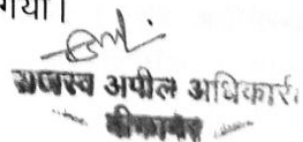 गया।
राजस्व अपील अधिकारी
बीकानेर